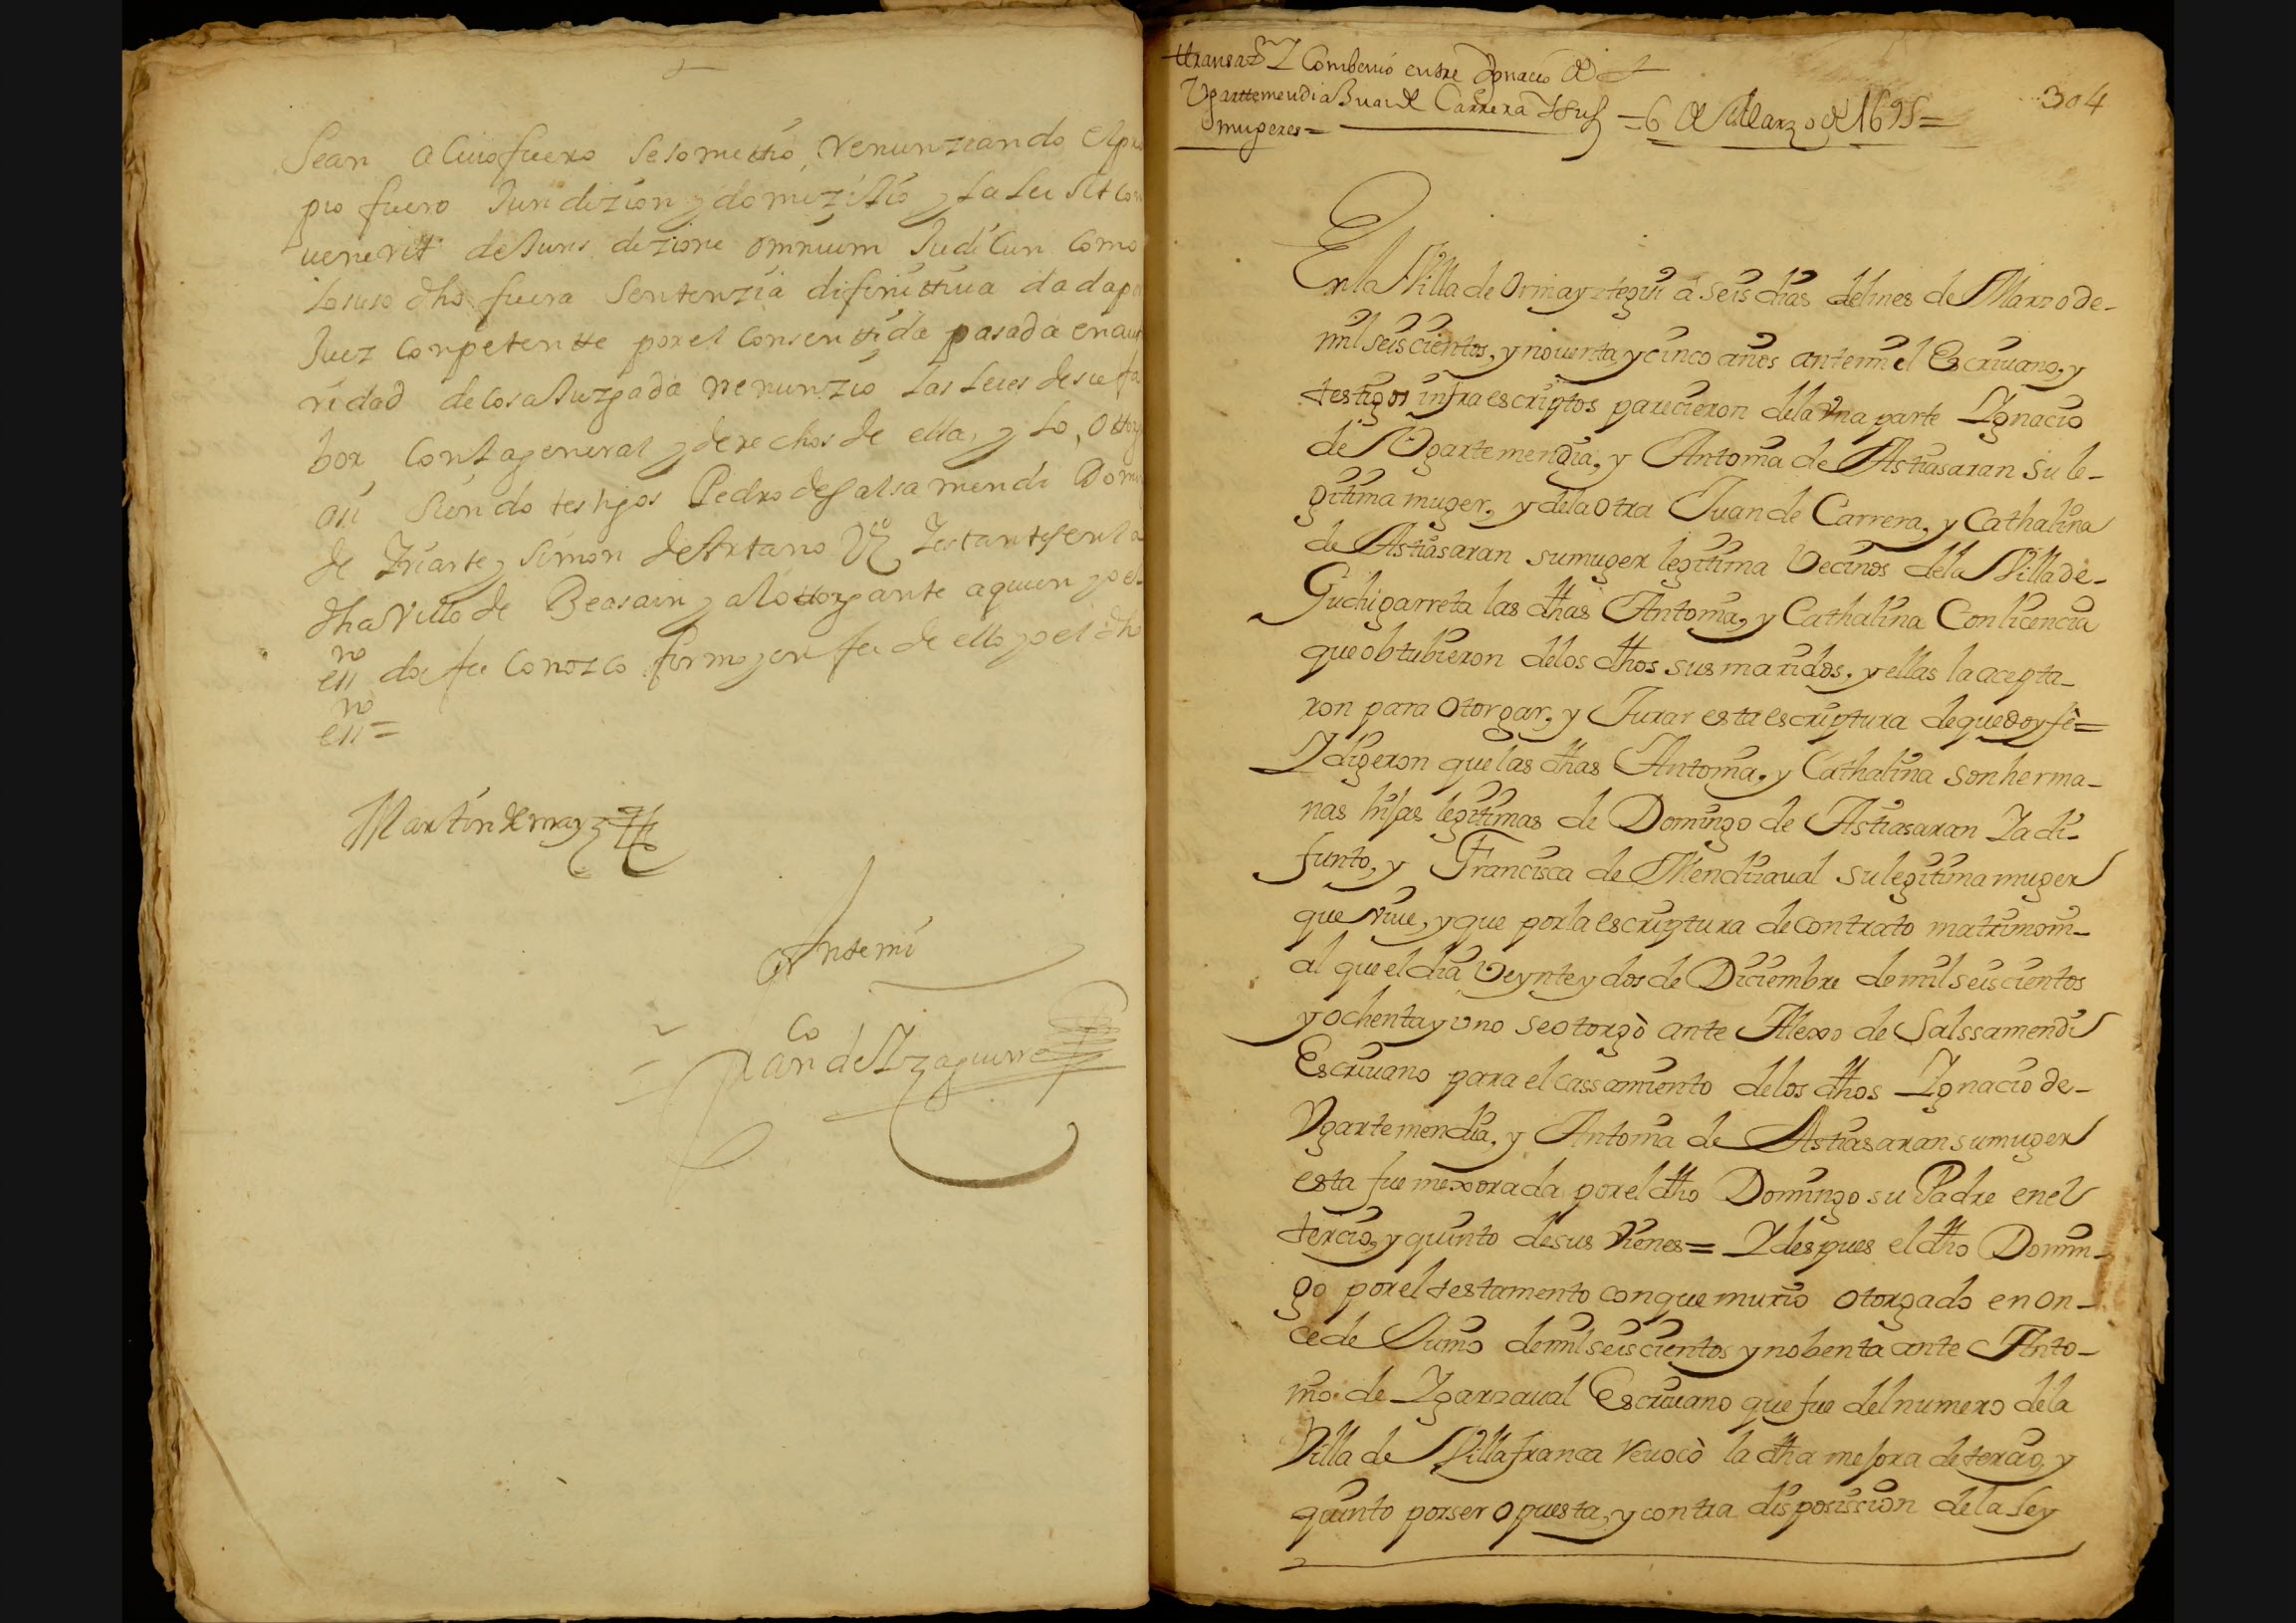 Sean a Cuio fuero Se sometio, renunziando el pro
pio fuero Juridizion y domizilio y la lei sit con
venerit de Juris dizione omnium Judicun como
lo suso dho fuera Sentenzia difinittiva dada por
Juez conpetentte por el consenttida pasada en autt
ridad de cosa Juzgada renunzio las leies de su fa
bor con la general y derechos de ella, y lo, ottorgo
asi siendo testigos Pedro de Salsamendi Domingo
de Yriarte y Simon de Artano Vos Y estantes en la
dha Villa de Beasain y al ottorgante a quien yo el
essno doi fee conozco firmo y en fee de ello yo el dho
essno =
Martin de mayz
Ante mi
Franco de Yzaguirre
ttransaon Y Combenio entre Ygnacio de
Vgarttemendia Juan de Carrera Y sus
mugeres =
= 6 de Marzo de 1695 =
304
En la Villa de Ormayztegui à seis dias del mes de Marzo de-
mil seis cientos, y noventa, y cinco años ante mi el Escrivano, y
testigos infraescriptos parecieron de la una parte Ygnacio
de Vgartemendia, y Antonia de Astiasaran su le-
gitima muger, y de la otra Juan de Carrera, y Cathalina
de Astiasaran su muger legitima Vecinos de la Villa de-
Guchigarreta las dhas Antonia, y Cathalina Con licencia
que obtubieron de los dhos sus maridos, y ellas la acepta-
ron para otorgar, y Jurar esta escriptura de que doy fè=
Y digeron que las dhas Antonia, y Cathalina son herma-
nas hijas legitimas de Domingo de Astiasaran Ya di-
funto, y Francisca de Mendizaval su legitima muger
que vive, y que por la escriptura de contrato matrimoni-
al que el dia Veynte y dos de Diciembre de mil seis cientos
y ochenta y uno se otorgò ante Alexo de Salssamendi
Escrivano para el cassamiento de los dhos Ygnacio de-
Vgartemendia, y Antonia de Astiasaran su muger
esta fue mexorada por el dho Domingo su Padre en el
tercio, y quinto de sus Vienes= Y despues el dho Domin-
go por el testamento con que murio otorgado en on-
ce de Junio de mil seis cientos y nobenta ante Anto-
nio de Ygarzaval Escrivano que fue del numero de la
Villa de Villafranca revocò la dha mejora de tercio, y
quinto por ser opuesta, y contra disposission de la ley